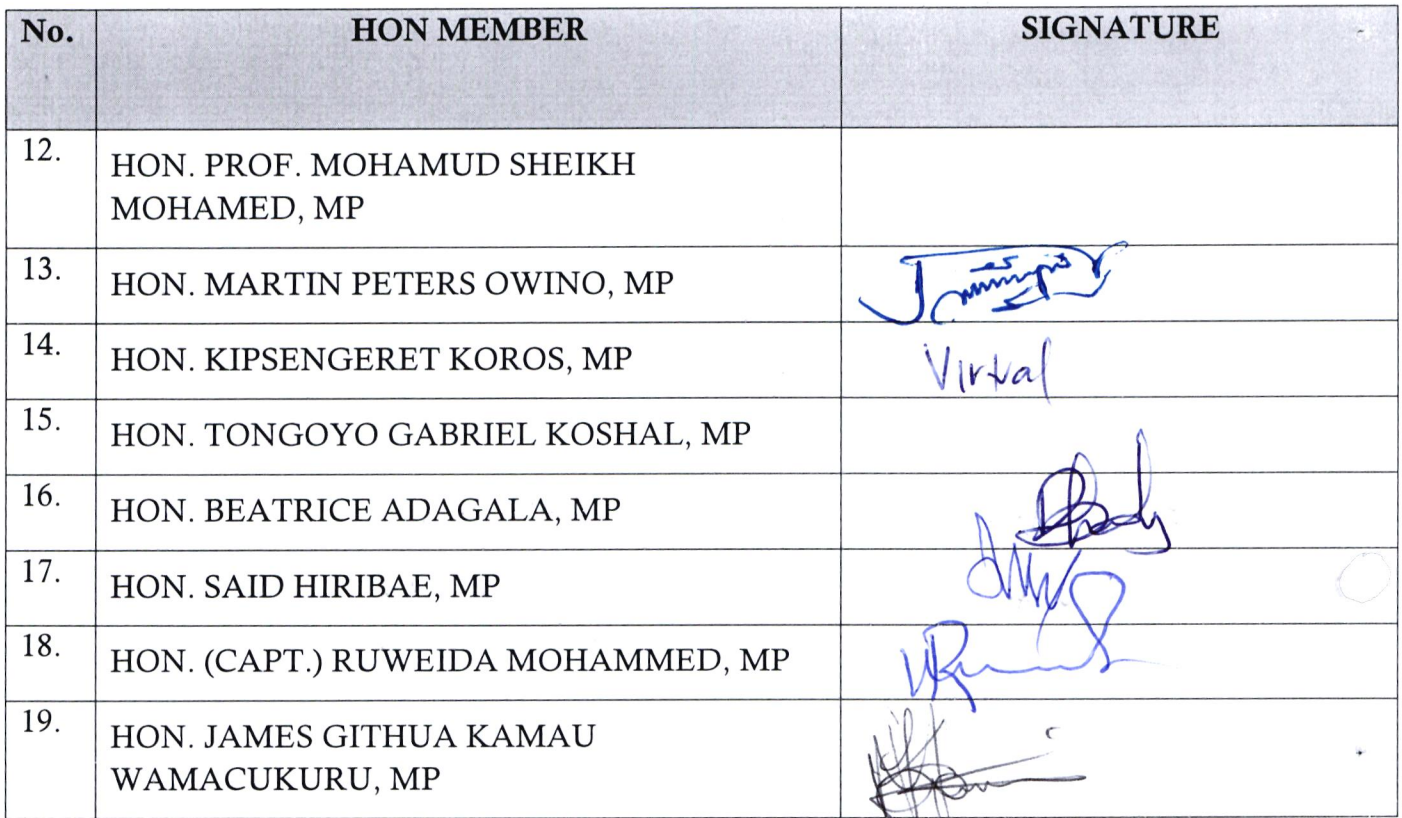 No. HON MEMBER SIGNATURE
12. HON. PROF. MOHAMUD SHEIKH
MOHAMED, MP
13. HON. MARTIN PETERS OWINO, MP
14. HON. KIPSENGERET KOROS, MP Virtual
15. HON. TONGOYO GABRIEL KOSHAL, MP
16. HON. BEATRICE ADAGALA, MP
17. HON. SAID HIRIBAE, MP
18. HON. (CAPT.) RUWEIDA MOHAMMED, MP
19. HON. JAMES GITHUA KAMAU
WAMACUKURU, MP